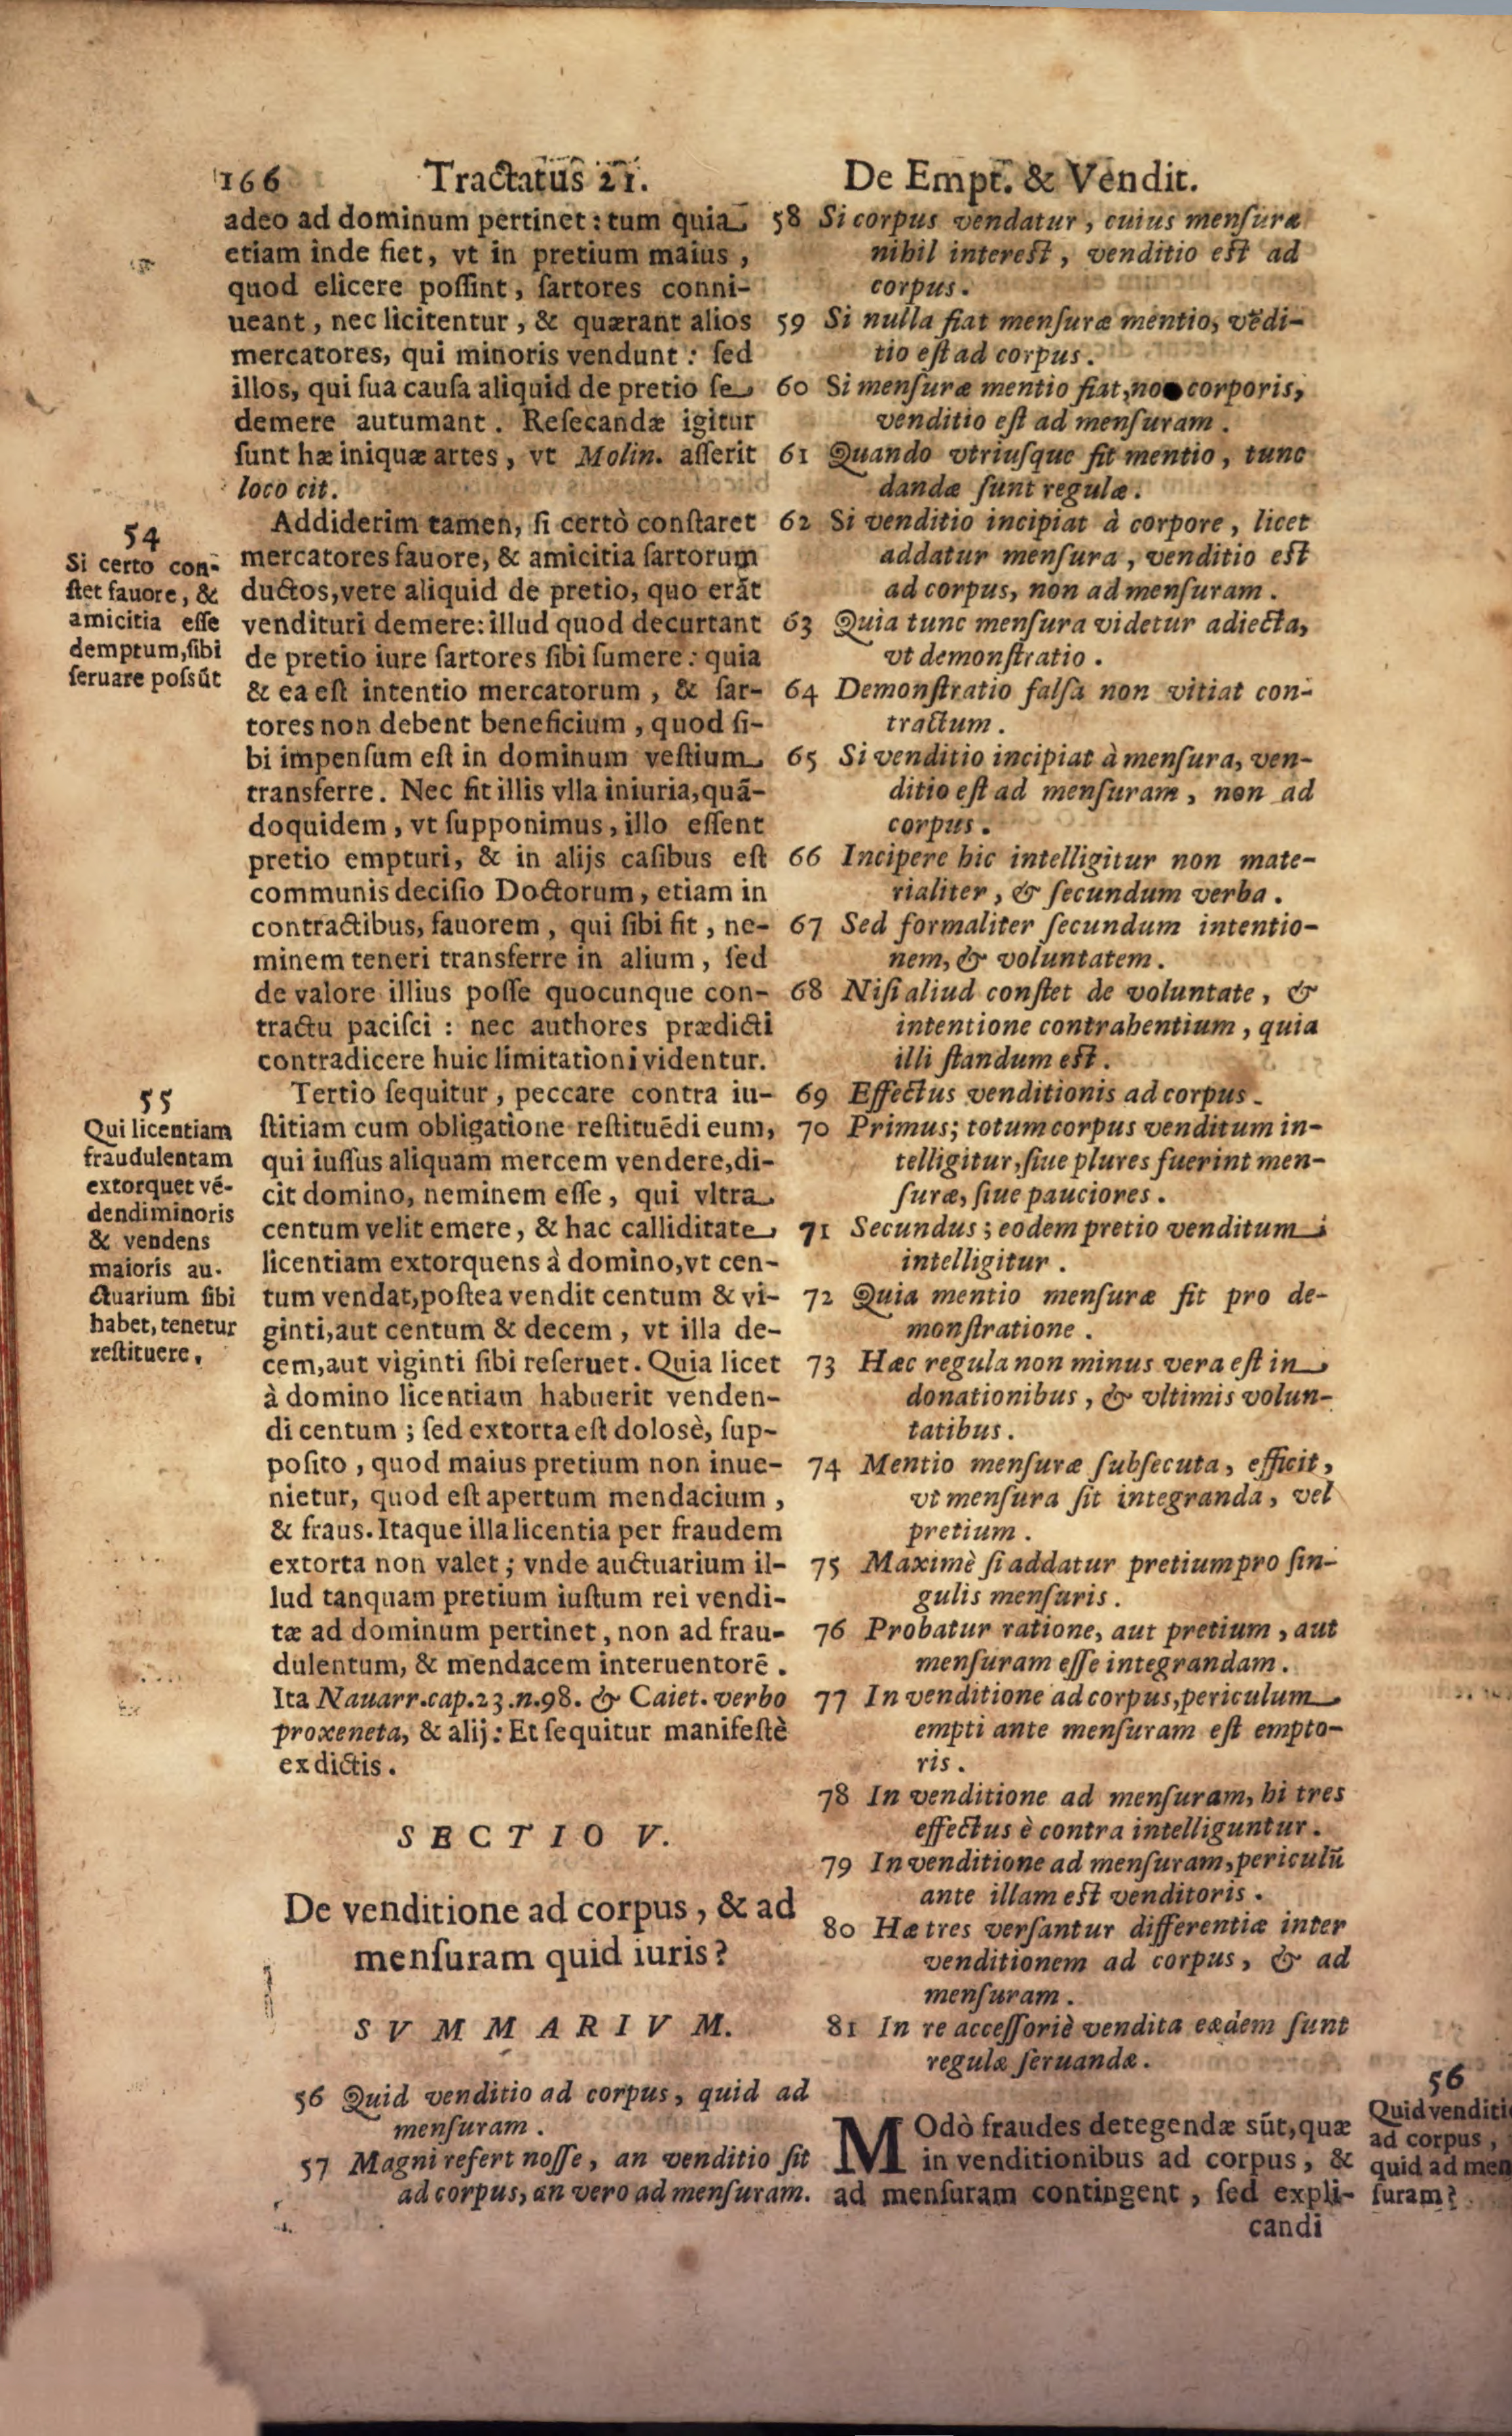 166 Tractatus 21. De Empt. & Vendit.
adeo ad dominum pertinet: tum quia
etiam inde fiet, vt in pretium maius,
quod elicere poſſint, ſartores conni-
ueant, nec licitentur, & quærant alios
mercatores, qui minoris vendunt: ſed
illos, qui ſua cauſa aliquid de pretio ſe
demere autumant. Reſecandæ igitur
ſunt hæ iniquæ artes, vt Molin. aſſerit
loco cit.
54
Si certo con-
ſtet fauore, &
amicitia eſſe
demptum, ſibi
ſeruare poſsūt
Addiderim tamen, ſi certò conſtaret
mercatores fauore, & amicitia ſartorum
ductos, vere aliquid de pretio, quo erāt
vendituri demere: illud quod decurtant
de pretio iure ſartores ſibi ſumere: quia
& ea eſt intentio mercatorum, & ſar-
tores non debent beneficium, quod ſi-
bi impenſum eſt in dominum veſtium
transferre. Nec fit illis vlla iniuria, quā-
doquidem, vt ſupponimus, illo eſſent
pretio empturi, & in alijs caſibus eſt
communis deciſio Doctorum, etiam in
contractibus, fauorem, qui ſibi fit, ne-
minem teneri transferre in alium, ſed
de valore illius poſſe quocunque con-
tractu paciſci: nec authores prædicti
contradicere huic limitationi videntur.
55
Qui licentiam
fraudulentam
extorquet vē-
dendi minoris
& vendens
maioris au-
ctuarium ſibi
habet, tenetur
reſtituere.
Tertio ſequitur, peccare contra iu-
ſtitiam cum obligatione reſtituēdi eum,
qui iuſſus aliquam mercem vendere, di-
cit domino, neminem eſſe, qui vltra
centum velit emere, & hac calliditate
licentiam extorquens à domino, vt cen-
tum vendat, poſtea vendit centum & vi-
ginti, aut centum & decem, vt illa de-
cem, aut viginti ſibi reſeruet. Quia licet
à domino licentiam habuerit venden-
di centum; ſed extorta eſt dolosè, ſup-
poſito, quod maius pretium non inue-
nietur, quod eſt apertum mendacium,
& fraus. Itaque illa licentia per fraudem
extorta non valet; vnde auctuarium il-
lud tanquam pretium iuſtum rei vendi-
tæ ad dominum pertinet, non ad frau-
dulentum, & mendacem interuentorē.
Ita Nauarr. cap. 23. n. 98. & Caiet. verbo
proxeneta, & alij: Et ſequitur manifeſtè
ex dictis.
SECTIO V.
De venditione ad corpus, & ad
menſuram quid iuris?
SVMMARIVM.
56 Quid venditio ad corpus, quid ad
menſuram.
57 Magni refert noſſe, an venditio ſit
ad corpus, an vero ad menſuram.
58 Si corpus vendatur, cuius menſuræ
nihil intereſt, venditio eſt ad
corpus.
59 Si nulla fiat menſuræ mentio, vēdi-
tio eſt ad corpus.
60 Si menſuræ mentio fiat, no corporis,
venditio eſt ad menſuram.
61 Quando vtriuſque fit mentio, tunc
dandæ ſunt regulæ.
62 Si venditio incipiat à corpore, licet
addatur menſura, venditio eſt
ad corpus, non ad menſuram.
63 Quia tunc menſura videtur adiecta,
vt demonſtratio.
64 Demonſtratio falſa non vitiat con-
tractum.
65 Si venditio incipiat à menſura, ven-
ditio eſt ad menſuram, non ad
corpus.
66 Incipere hic intelligitur non mate-
rialiter, & ſecundum verba.
67 Sed formaliter ſecundum intentio-
nem, & voluntatem.
68 Niſi aliud conſtet de voluntate, &
intentione contrahentium, quia
illi ſtandum eſt.
69 Effectus venditionis ad corpus.
70 Primus; totum corpus venditum in-
telligitur, ſiue plures fuerint men-
ſuræ, ſiue pauciores.
71 Secundus; eodem pretio venditum
intelligitur.
72 Quia mentio menſuræ fit pro de-
monſtratione.
73 Hæc regula non minus vera eſt in
donationibus, & vltimis volun-
tatibus.
74 Mentio menſuræ ſubſecuta, efficit,
vt menſura ſit integranda, vel
pretium.
75 Maximè ſi addatur pretium pro ſin-
gulis menſuris.
76 Probatur ratione, aut pretium, aut
menſuram eſſe integrandam.
77 In venditione ad corpus, periculum
empti ante menſuram eſt empto-
ris.
78 In venditione ad menſuram, hi tres
effectus è contra intelliguntur.
79 In venditione ad menſuram, periculū
ante illam eſt venditoris.
80 Hæ tres verſantur differentiæ inter
venditionem ad corpus, & ad
menſuram.
81 In re acceſſoriè vendita eædem ſunt
regulæ ſeruandæ.
56
Quid venditi
ad corpus,
quid ad men
ſuram?
MOdò fraudes detegendæ sūt, quæ
in venditionibus ad corpus, &
ad menſuram contingent, ſed expli-
candi